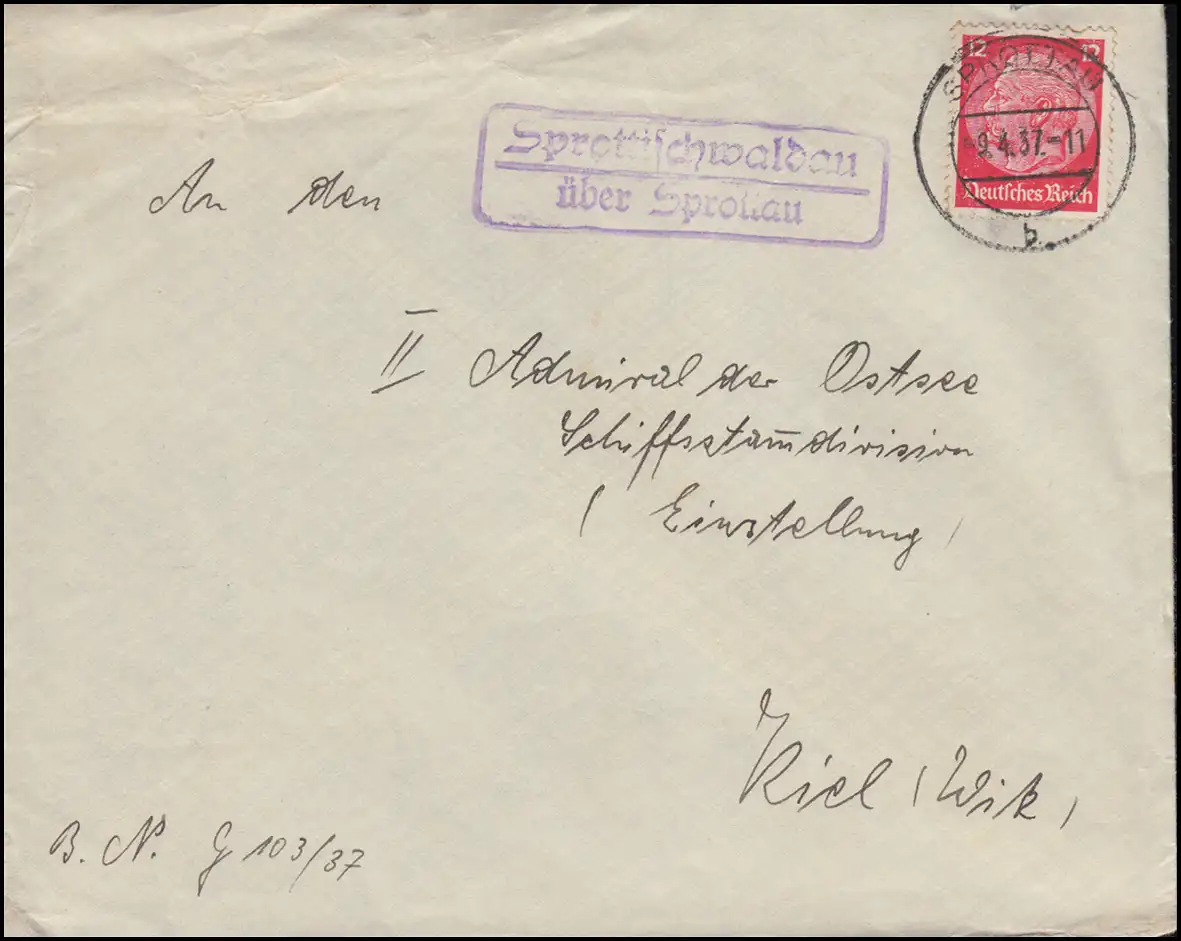 12 12
SPROTTAU
-9.4.37.-11
Deutsches Reich
b
Sprottischwaldau
über Sprottau
An den
II Admiral der Ostsee
Schiffsstam̄division
(Einstellung)
Kiel (Wik)
B. N. G 103/37